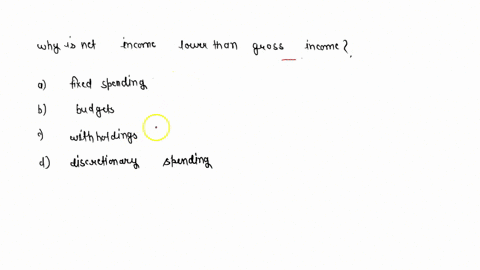 why is net income lower than gross income?
a) fixed spending
b) budgets
c) withholdings
d) discretionary spending